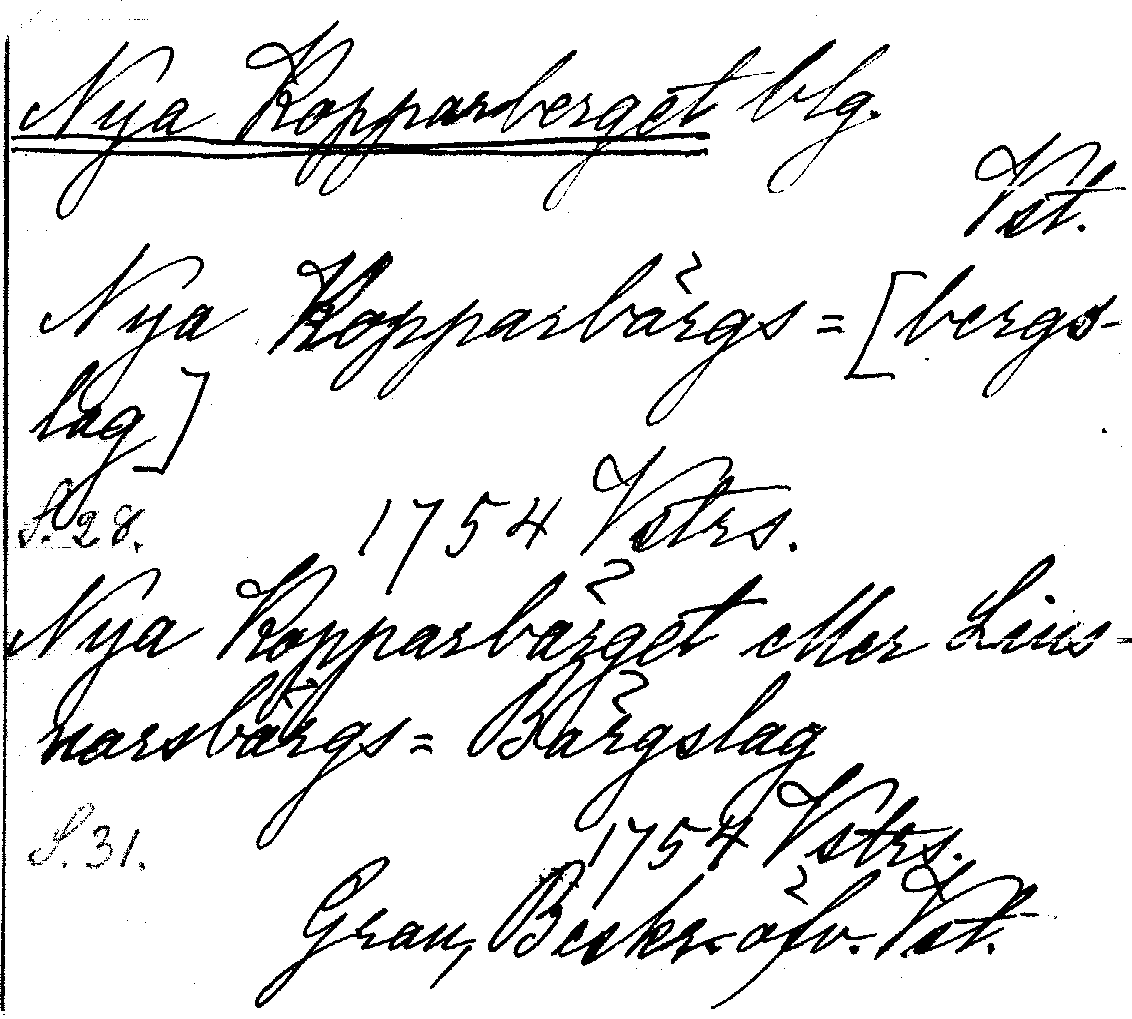 Nya Kopparberget blg.
Vst.
Nya Kopparbärgs = [bergs-
lag]
S. 28. 1754 Vstrs.
Nya Kopparbärget eller Lius-
narsbärgs = Bärgslag
S. 31. 1754 Vstrs.
Grau, Beskr. öfv. Vst.